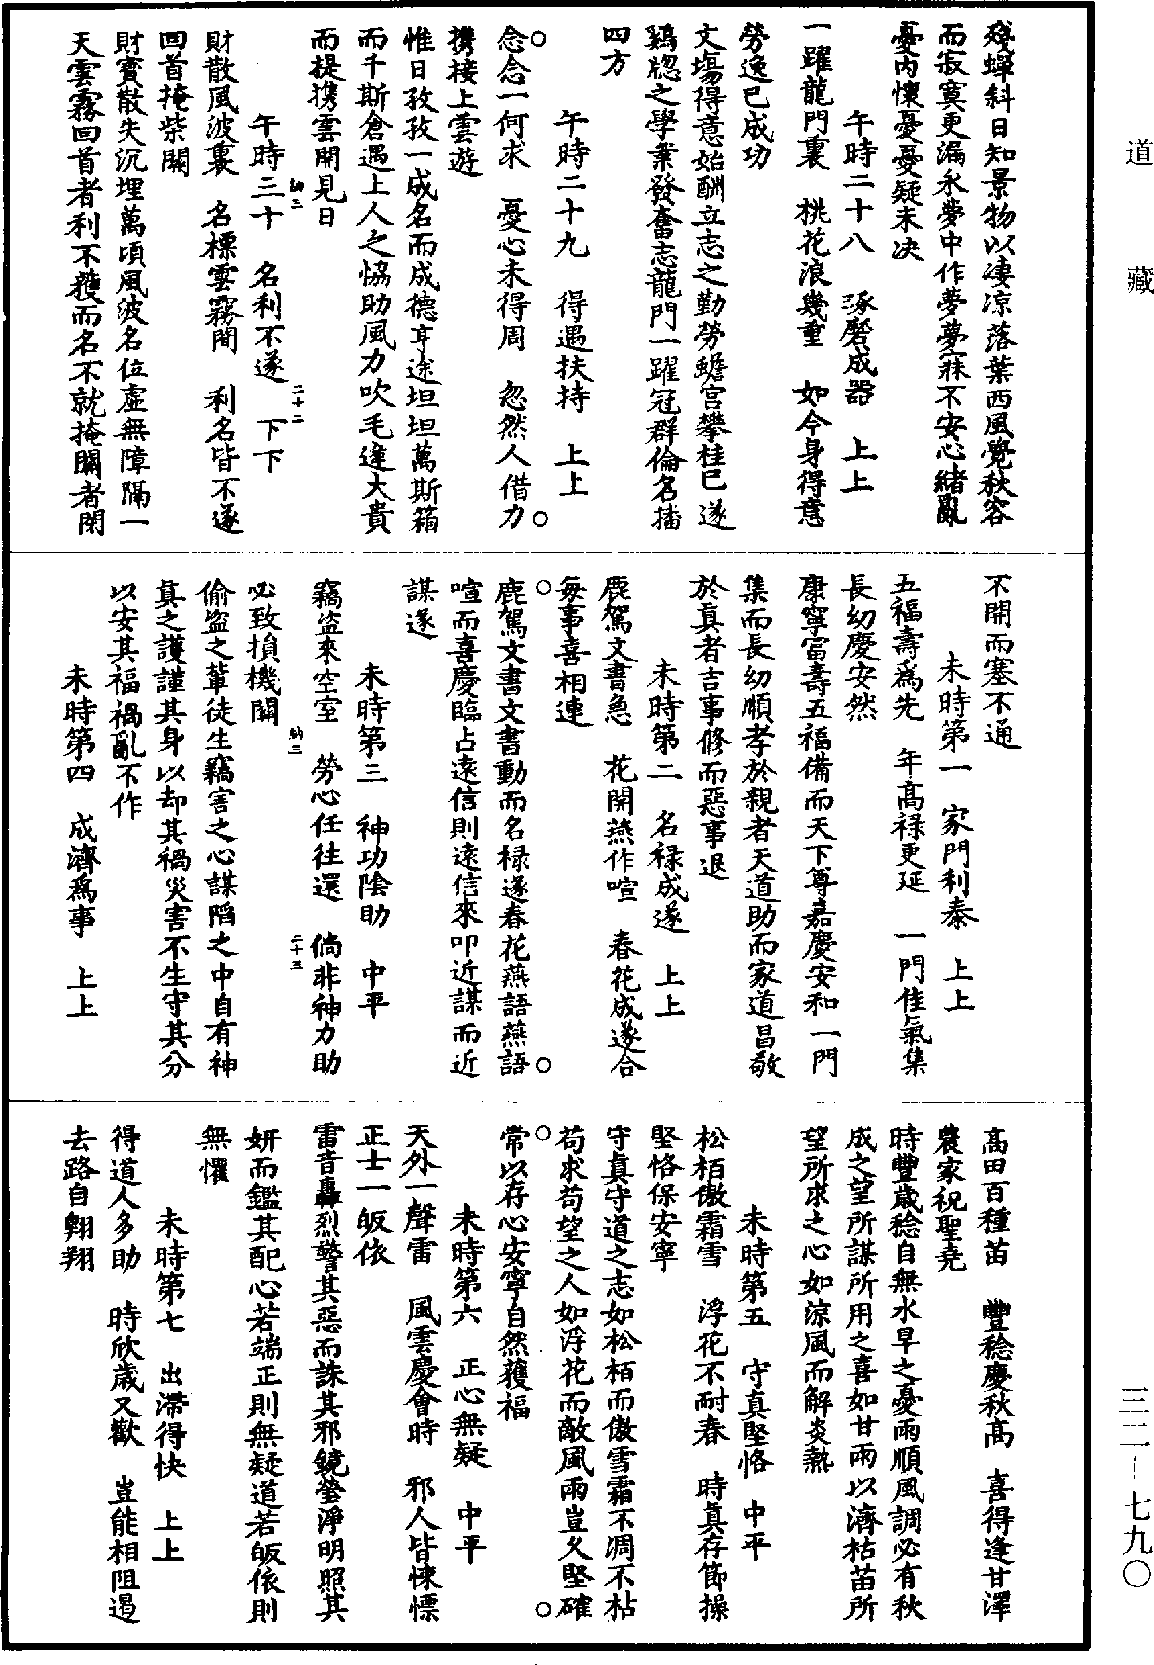 道藏
三二—七九〇
殘蟬斜日知景物以凄凉落葉西風覺秋容
而寂寞更漏永夢中作夢夢寐不安心緒亂
憂內懷憂憂疑未决
午時二十八　琢磨成器　上上
一躍龍門裏　桃花浪幾重　如今身得意
勞逸已成功
文場得意始酬立志之勤勞蟾宮攀桂已遂
鷄牕之學業發奮志龍門一躍冠群倫名播
四方
午時二十九　得遇扶持　上上
念念一何求　憂心未得周　忽然人借力
携接上雲遊
惟日孜孜一成名而成德亨途坦坦萬斯箱
而千斯倉遇上人之恊助風力吹毛達大貴
而提携雲開見日
午時三十　名利不遂　下下
財散風波裏　名標雲霧間　利名皆不遂
回首掩柴關
財寳散失沉埋萬頃風波名位虛無障隔一
天雲霧回首者利不獲而名不就掩關者閉
不開而塞不通
未時第一　家門利泰　上上
五福壽爲先　年高禄更延　一門佳氣集
長幼慶安然
康寧富壽五福備而天下尊嘉慶安和一門
集而長幼順孝於親者天道助而家道昌敬
於真者吉事修而惡事退
未時第二　名禄成遂　上上
鹿駕文書急　花開燕作喧　春花成遂合
每事喜相連
鹿駕文書文書動而名禄遂春花燕語燕語
喧而喜慶臨占遠信則遠信來叩近謀而近
謀遂
未時第三　神功陰助　中平
竊盜來空室　勞心任往還　倘非神力助
必致損機關
偷盜之輩徒生竊害之心謀陷之中自有神
真之護謹其身以却其禍災害不生守其分
以安其福禍亂不作
未時第四　成濟爲事　上上
高田百種苗　豐稔慶秋高　喜得逢甘澤
農家祝聖堯
時豐歲稔自無水旱之憂雨順風調必有秋
成之望所謀所用之喜如甘雨以濟枯苗所
望所求之心如凉風而解炎熱
未時第五　守真堅恪　中平
松栢傲霜雪　浮花不耐春　時真存節操
堅恪保安寧
守真守道之志如松栢而傲雪霜不凋不枯
苟求苟望之人如浮花而敵風雨豈久堅確
常以存心安寧自然獲福
未時第六　正心無疑　中平
天外一聲雷　風雲慶會時　邪人皆悚慄
正士一皈依
雷音轟烈警其惡而誅其邪鏡瑩淨明照其
妍而鑑其配心若端正則無疑道若皈依則
無懼
未時第七　出滯得快　上上
得道人多助　時欣歲又歡　豈能相阻遏
去路自翺翔